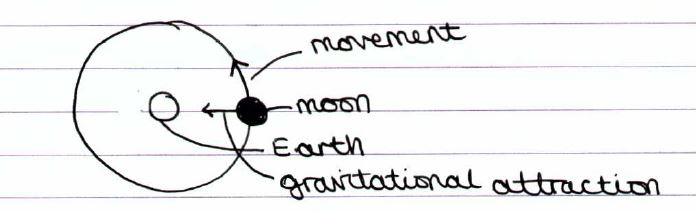 movement
moon
Earth
gravitational attraction